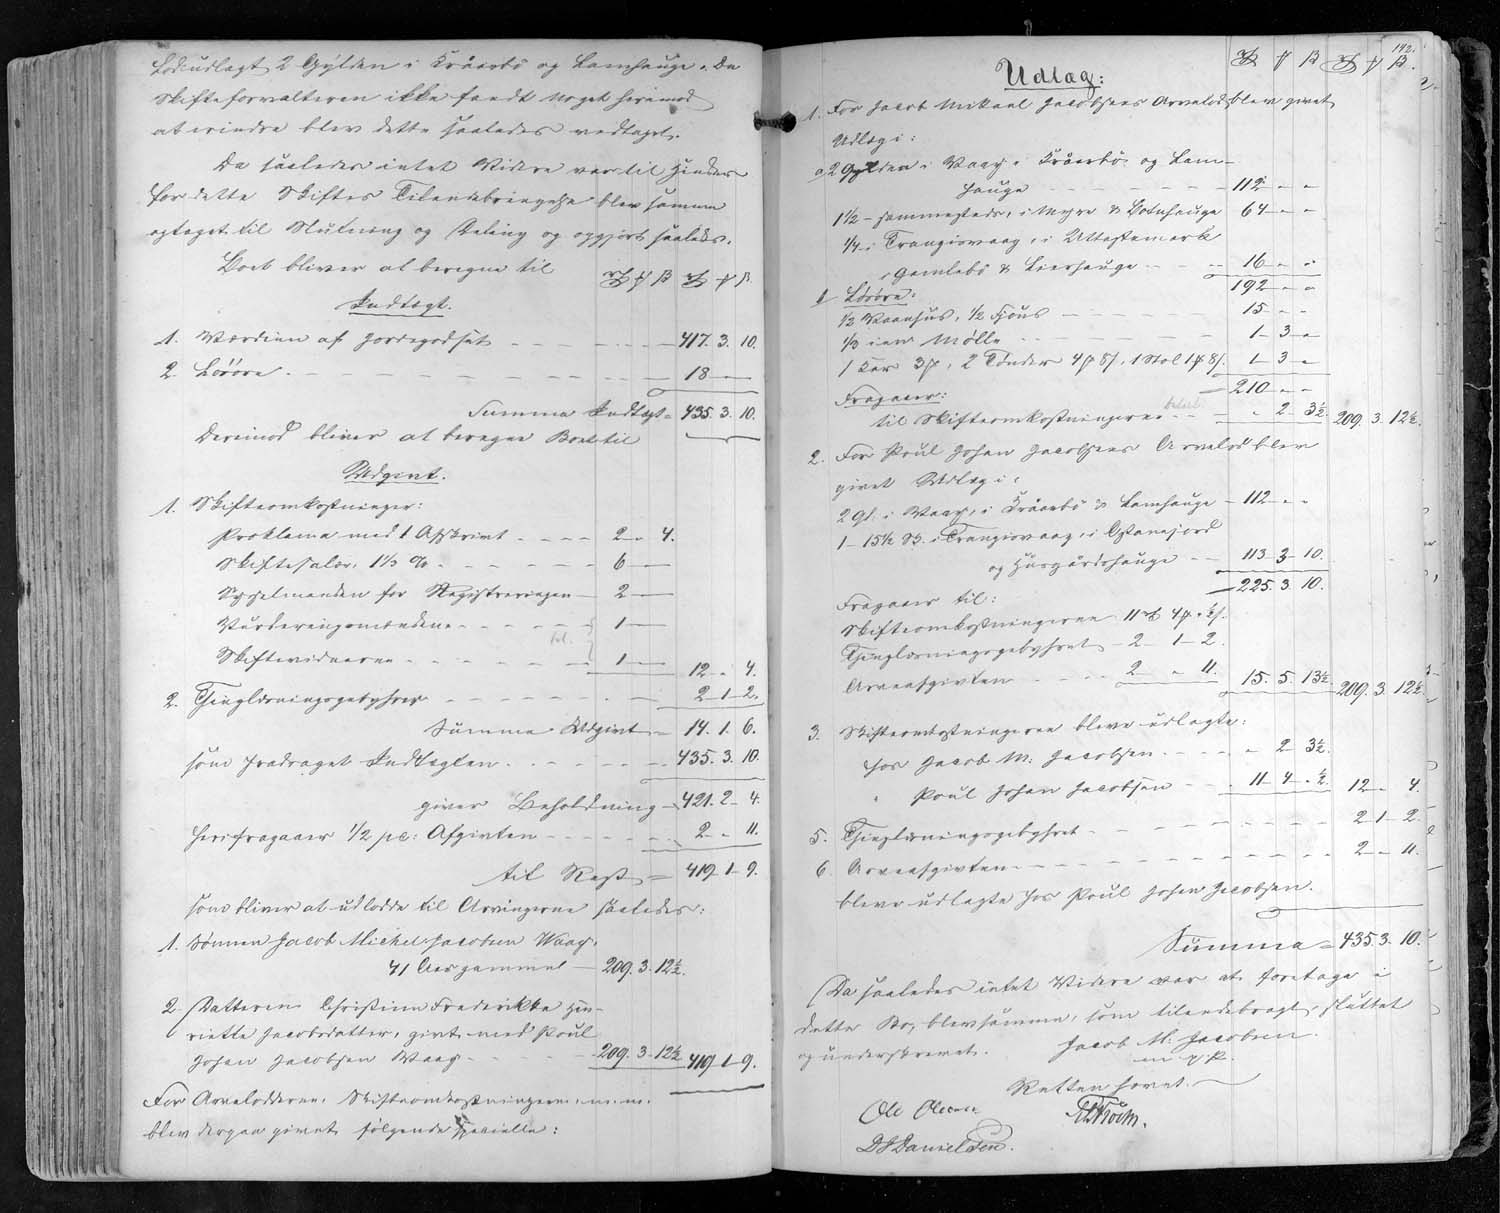 Lod udlagt 2 Gylden i Kråarbö og Lamhauge. Da
Skifteforvalteren ikke fandt noget herimod
at erindre blev dette saaledes vedtaget.
Da saaledes intet Videre var til Hinder
for dette Skiftes Tilendebringelse blev samme
optaget til Slutning og Deling og opgjort saaledes.
Boet bliver at beregne til
Indtægt.
1. Værdien af Jordegodset 417. 3. 10.
2. Løsøre 18
Summa Indtægt = 435. 3. 10.
Derimod bliver at beregne Boet til
Udgivt.
1. Skifteomkostninger:
Proklama med 1 Afskrivt 2 " 4.
Skiftesalær, 1 1/3 % 6
Sysselmanden for Registreringen 2
Vurderingsmændene 1
Skiftevidnerne 1 12 " 4.
2. Thinglæsningsgebyhrer 2 1 2.
Summa Udgivt = 14. 1. 6.
som fradraget Indtægten 435. 3. 10.
giver Beholdning 421. 2. 4.
herfragaaer 1/2 pc: Afgivten 2 " 11.
til Rest = 419 1 9.
som bliver at udlodde til Arvingerne saaledes:
1. Sønnen Jacob Michel Jacobsen Waag,
41 Aar gammel 209. 3. 12½.
2 Datteren Christine Frederikke Hen-
riette Jacobsdatter, givt med Poul
Johan Jacobsen Waag 209. 3. 12½ 419 1 9.
For Arvelodderne, Skifteomkostningerne m.m.
blev derpaa givet følgende specielle:
142.
Udlæg:
1. For Jacob Mikael Jacobsens Arvelod blev givet
Udlæg i:
a 2 Gylden i Vaag i Kråarbö og Lam-
hauge 112 " "
1½ sammesteds, i Myre & Botnhauge 64 " "
¼ i Trangisvaag, i Uttastemark
Gamlebö & Lierhauge 16 " "
192 " "
Løsøre:
½ Vaanhus, ½ Fjøus 15 " "
⅓ i en Mølle 1 3 "
1 Kar 3 , 2 Tønder 4 8 , 1 Stol 1 8 1 3 "
210 " "
Fragaaer:
til Skifteomkostningerne " 2 3½ 209. 3. 12½.
2. For Poul Johan Jacobsens Arvelod blev
givet Udlæg i:
2 Gl. i Vaag, i Kråarbö & Lamhauge 112 " "
1 15½ Sk. i Trangisvaag, i Østanafjord
og Husgårdshauge 113 3 10.
225. 3. 10.
Fragaaer til:
Skifteomkostningerne 11 4 " ½
Thinglæsningsgebyhret 2 1 2.
Arveafgivten 2 " 11. 15. 5. 13½ 209. 3. 12½
3. Skifteomkostningerne bleve udlagte:
hos Jacob M. Jacobsen " 2 3½.
" Poul Johan Jacobsen 11 4 " ½ 12 " 4.
5. Thinglæsningsgebyhret 2 1 2.
6. Arveafgivten 2 " 11.
bleve udlagte hos Poul Johan Jacobsen.
Summa = 435. 3. 10.
Da saaledes intet Videre var at foretage i
dette Bo, blev samme, som tilendebragt, sluttet
og underskrevet. Jacob M. Jacobsen
m. p. P.
Retten hævet.
Ole Olesen
DJDanielsen.